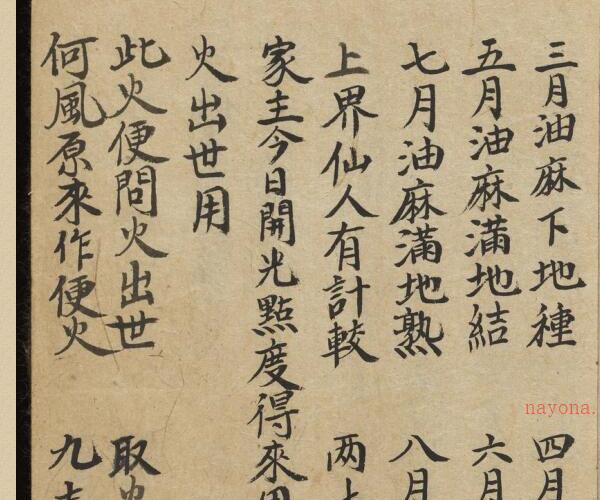 三月油麻下地種　四月
五月油麻滿地結　六月
七月油麻滿地熟　八月
上界仙人有計較　两
家主今日開光點度得來用
火出世用
此火便問火出世　取火
何風原來作便火　九
nayona.